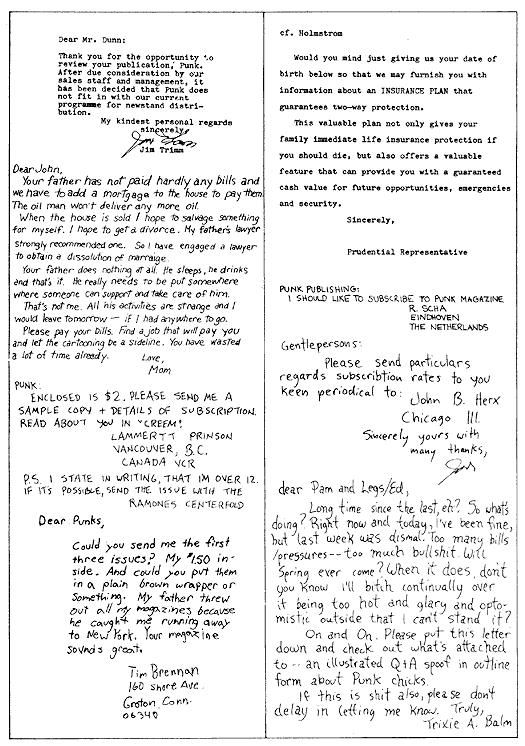 Dear Mr. Dunn:
Thank you for the opportunity to
review your publication, Punk.
After due consideration by our
sales staff and management, it
has been decided that Punk does
not fit in with our current
programme for newstand distri-
bution.
My kindest personal regards
sincerely,
Jim Trimm
Dear John,
Your father has not paid hardly any bills and
we have to add a mortgage to the house to pay them.
The oil man won't deliver any more oil.
When the house is sold I hope to salvage something
for myself. I hope to get a divorce. My father's lawyer
strongly recommended one. So I have engaged a lawyer
to obtain a dissolution of marraige.
Your father does nothing at all. He sleeps, he drinks
and that's it. He really needs to be put somewhere
where someone can support and take care of him.
That's not me. All his activities are strange and I
would leave tomorrow — if I had anywhere to go.
Please pay your bills. Find a job that will pay you
and let the cartooning be a sideline. You have wasted
a lot of time already.
Love,
Mom
PUNK:
ENCLOSED IS $2. PLEASE SEND ME A
SAMPLE COPY + DETAILS OF SUBSCRIPTION.
READ ABOUT YOU IN "CREEM".
LAMMERTT PRINSON
VANCOUVER, B.C.
CANADA VCR
P.S. I STATE IN WRITING, THAT IM OVER 12.
IF IT'S POSSIBLE, SEND THE ISSUE WITH THE
RAMONES CENTERFOLD
Dear Punks,
Could you send me the first
three issues? My $1.50 in-
side. And could you put them
in a plain brown wrapper or
something. My father threw
out all my magazines because
he caught me running away
to New York. Your magazine
sounds great.
Tim Brennan
160 Shore Ave.
Groton, Conn.
06340
cf. Holmstrom
Would you mind just giving us your date of
birth below so that we may furnish you with
information about an INSURANCE PLAN that
guarantees two-way protection.
This valuable plan not only gives your
family immediate life insurance protection if
you should die, but also offers a valuable
feature that can provide you with a guaranteed
cash value for future opportunities, emergencies
and security.
Sincerely,
Prudential Representative
PUNK PUBLISHING:
I SHOULD LIKE TO SUBSCRIBE TO PUNK MAGAZINE
R. SCHA
EINDHOVEN
THE NETHERLANDS
Gentlepersons:
Please send particulars
regards subscribtion rates to you
keen periodical to:
John B. Herx
Chicago Ill.
Sincerely yours with
many thanks,
dear Pam and Legs/Ed,
Long time since the last, eh? So whats
doing? Right now and today, I've been fine,
but last week was dismal. Too many bills
/pressures -- too much bullshit. Will
Spring ever come? When it does, don't
you know I'll bitch continually over
it being too hot and glary and opto-
mistic outside that I can't stand it?
On and On. Please put this letter
down and check out what's attached
to -- an illustrated Q+A spoof in outline
form about Punk chicks.
If this is shit also, please don't
delay in letting me know. Truly,
Trixie A. Balm